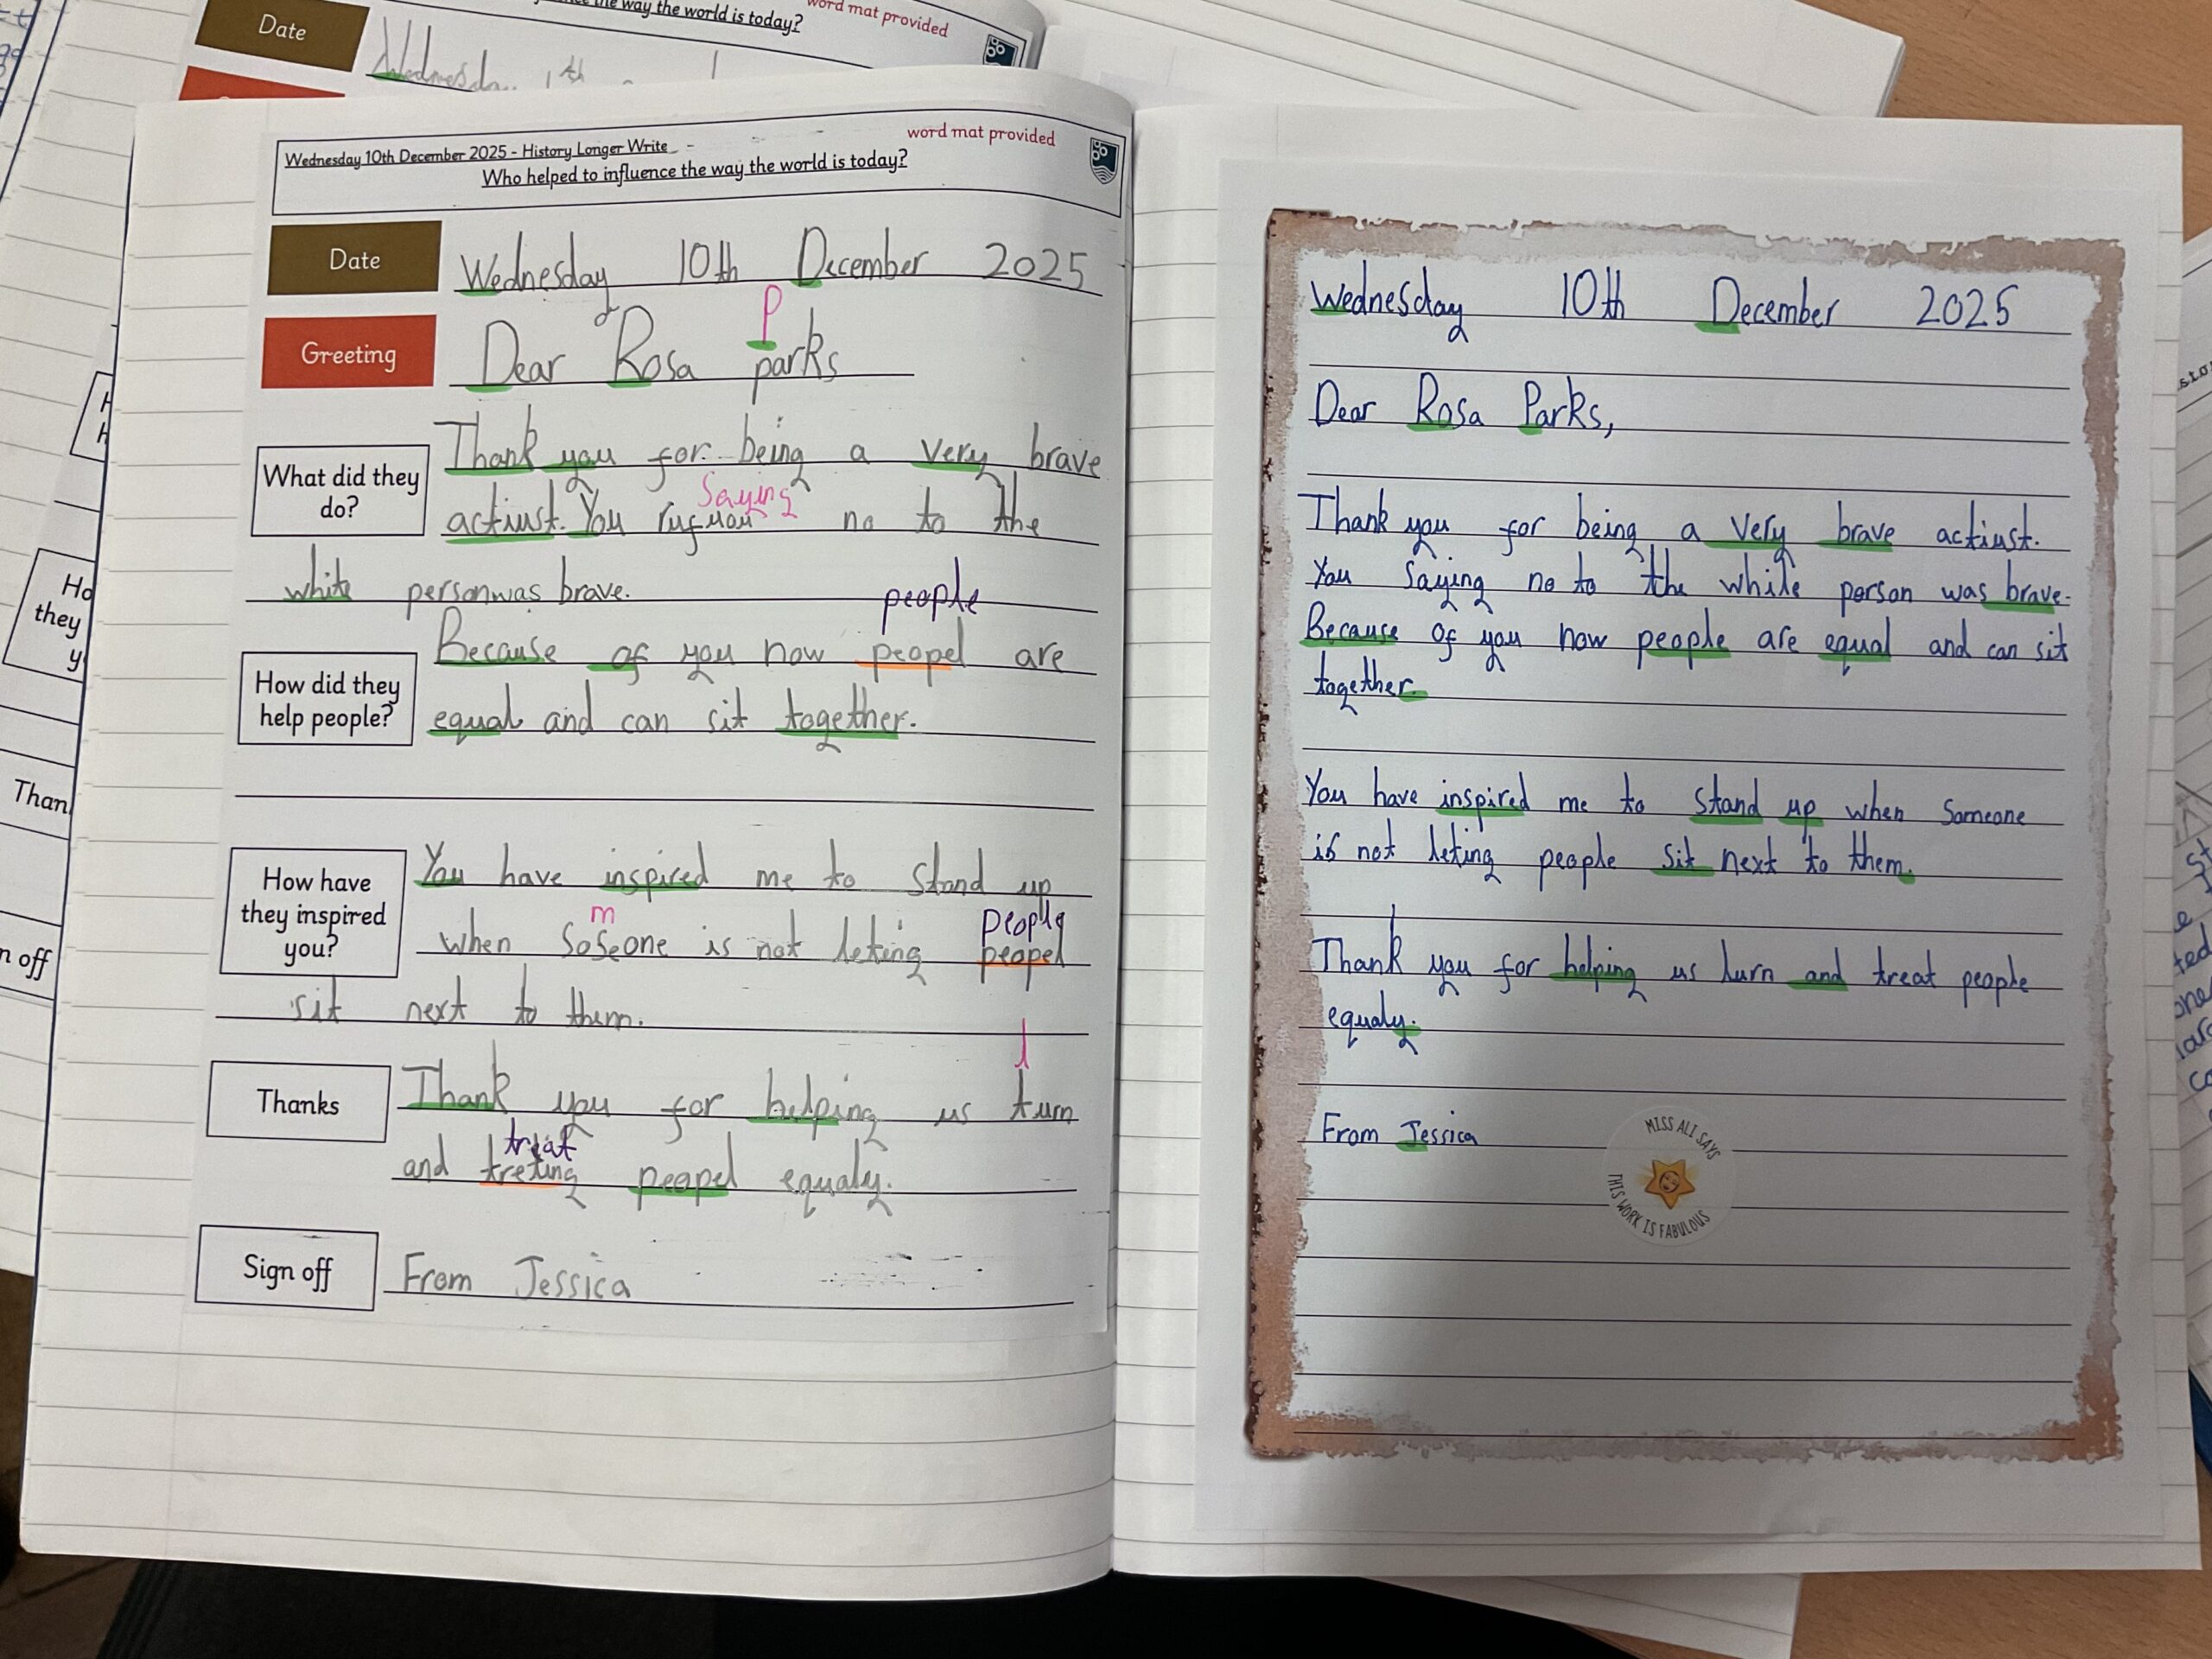 the way the world is today?
word mat provided
Date
Wednesday 10th December 2025 - History Longer Write
word mat provided
Who helped to influence the way the world is today?
Date
Wednesday 10th December 2025
P
Greeting
Dear Rosa parks
What did they do?
Thank you for being a very brave
Saying
actiust. You no to the
white personwas brave.
people
How did they help people?
Because of you now peopel are
equal and can sit together.
How have they inspired you?
You have inspired me to stand up
m
people
when soseone is not leting peopel
sit next to them.
l
Thanks
Thank you for helping us turn
treat
and treting peopel equaly.
Sign off
From Jessica
they
Than
n off
Wednesday 10th December 2025
Dear Rosa Parks,
Thank you for being a very brave actiust.
You Saying no to the while person was brave.
Because of you now people are equal and can sit
together.
You have inspired me to stand up when Someone
is not leting people sit next to them.
Thank you for helping us lurn and treat people
equaly.
From Jessica
MISS ALI SAYS
THIS WORK IS FABULOUS